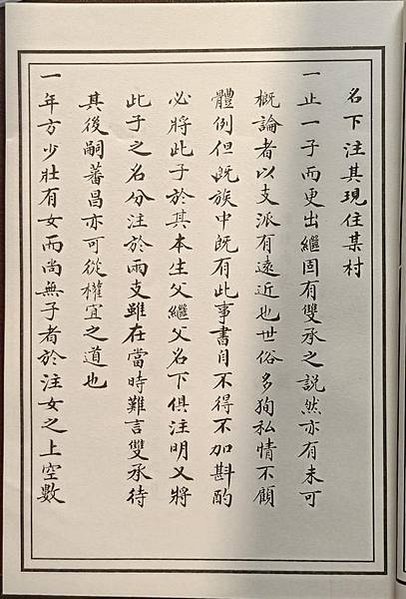 名下注其現住某村
一止一子而更出繼固有雙承之説然亦有未可
概論者以支派有遠近也世俗多狥私情不顧
體例但旣族中旣有此事書目不得不加斟酌
必將此子於其本生父繼父名下俱注明又將
此子之名分注於兩支雖在當時難言雙承待
其後嗣蕃昌亦可從權宜之道也
一年方少壯有女而尚無子者於注女之上空數